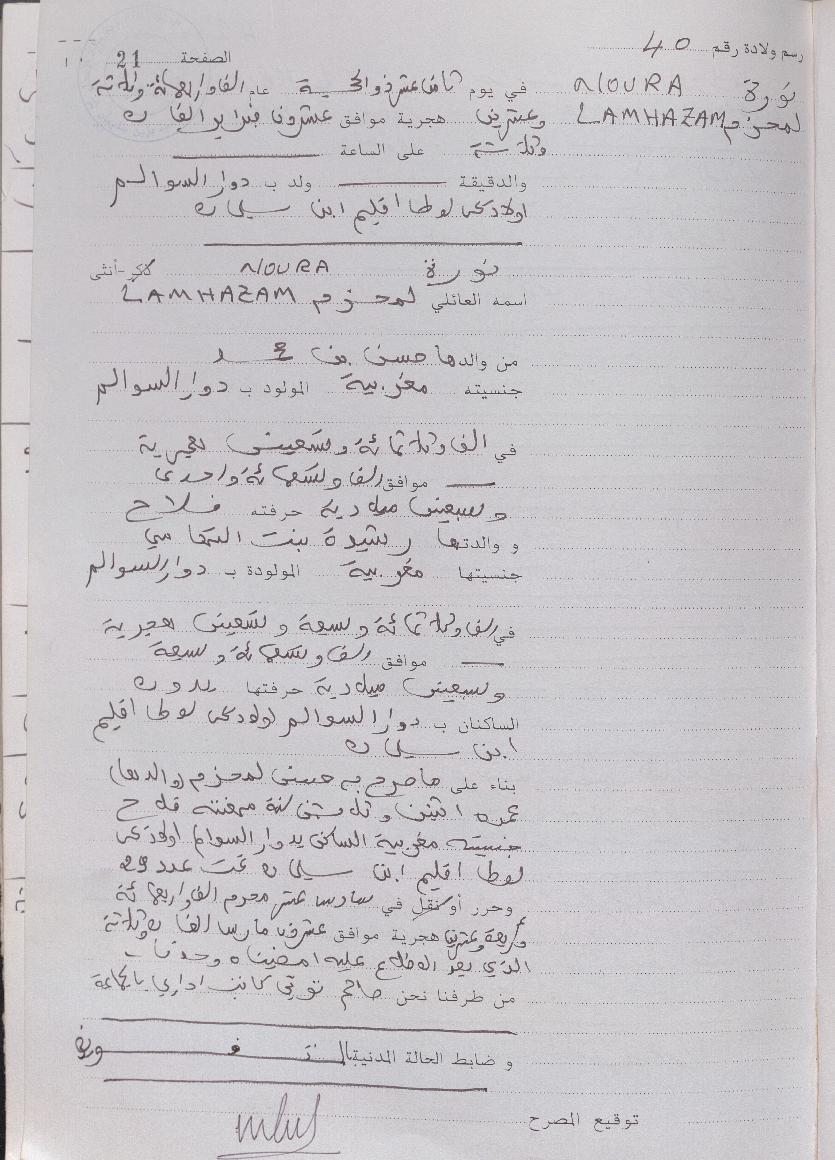 رسم ولادة رقم 40
الصفحة 21
نورة NOURA
لمحزم LAMHAZAM
في يوم ثامن عشر ذو الحجة عام الف واربعمائة وثلاثة
وعشرين هجرية موافق عشرون فبراير الفان
وثلاثة على الساعة
والدقيقة ولد ب دوار السوالم
اولاد يحي لوطا اقليم ابن سليمان
نورة NOURA ذكر-أنثى
اسمه العائلي لمحزم LAMHAZAM
من والدها حسن بن محمد
جنسيته مغربية المولود ب دوار السوالم
في الف وثلاثمائة وتسعين هجرية
موافق الف وتسعمائة واحدى
وسبعين ميلادية حرفته فلاح
و والدتها رشيدة بنت التهامي
جنسيتها مغربية المولودة ب دوار السوالم
في الف وثلاثمائة وتسعة وتسعين هجرية
موافق الف وتسعمائة وتسعة
وسبعين ميلادية حرفتها بدون
الساكنان ب دوار السوالم اولاد يحي لوطا اقليم
ابن سليمان
بناء على ما صرح به حسن لمحزم (والدها)
عمره اثنين وثلاثين سنة مهنته فلاح
جنسيته مغربية الساكن بدوار السوالم اولاد يحي
لوطا اقليم ابن سليمان تحت عدد 29
وحرر أو نقل في سادس عشر محرم الف واربعمائة
واربعة وعشرين هجرية موافق عشرون مارس الفان وثلاثة
الذي بعد الاطلاع عليه امضيناه وحدنا
من طرفنا نحن كاتب اداري بالجماعة
و ضابط الحالة المدنية بالتفويض
توقيع المصرح